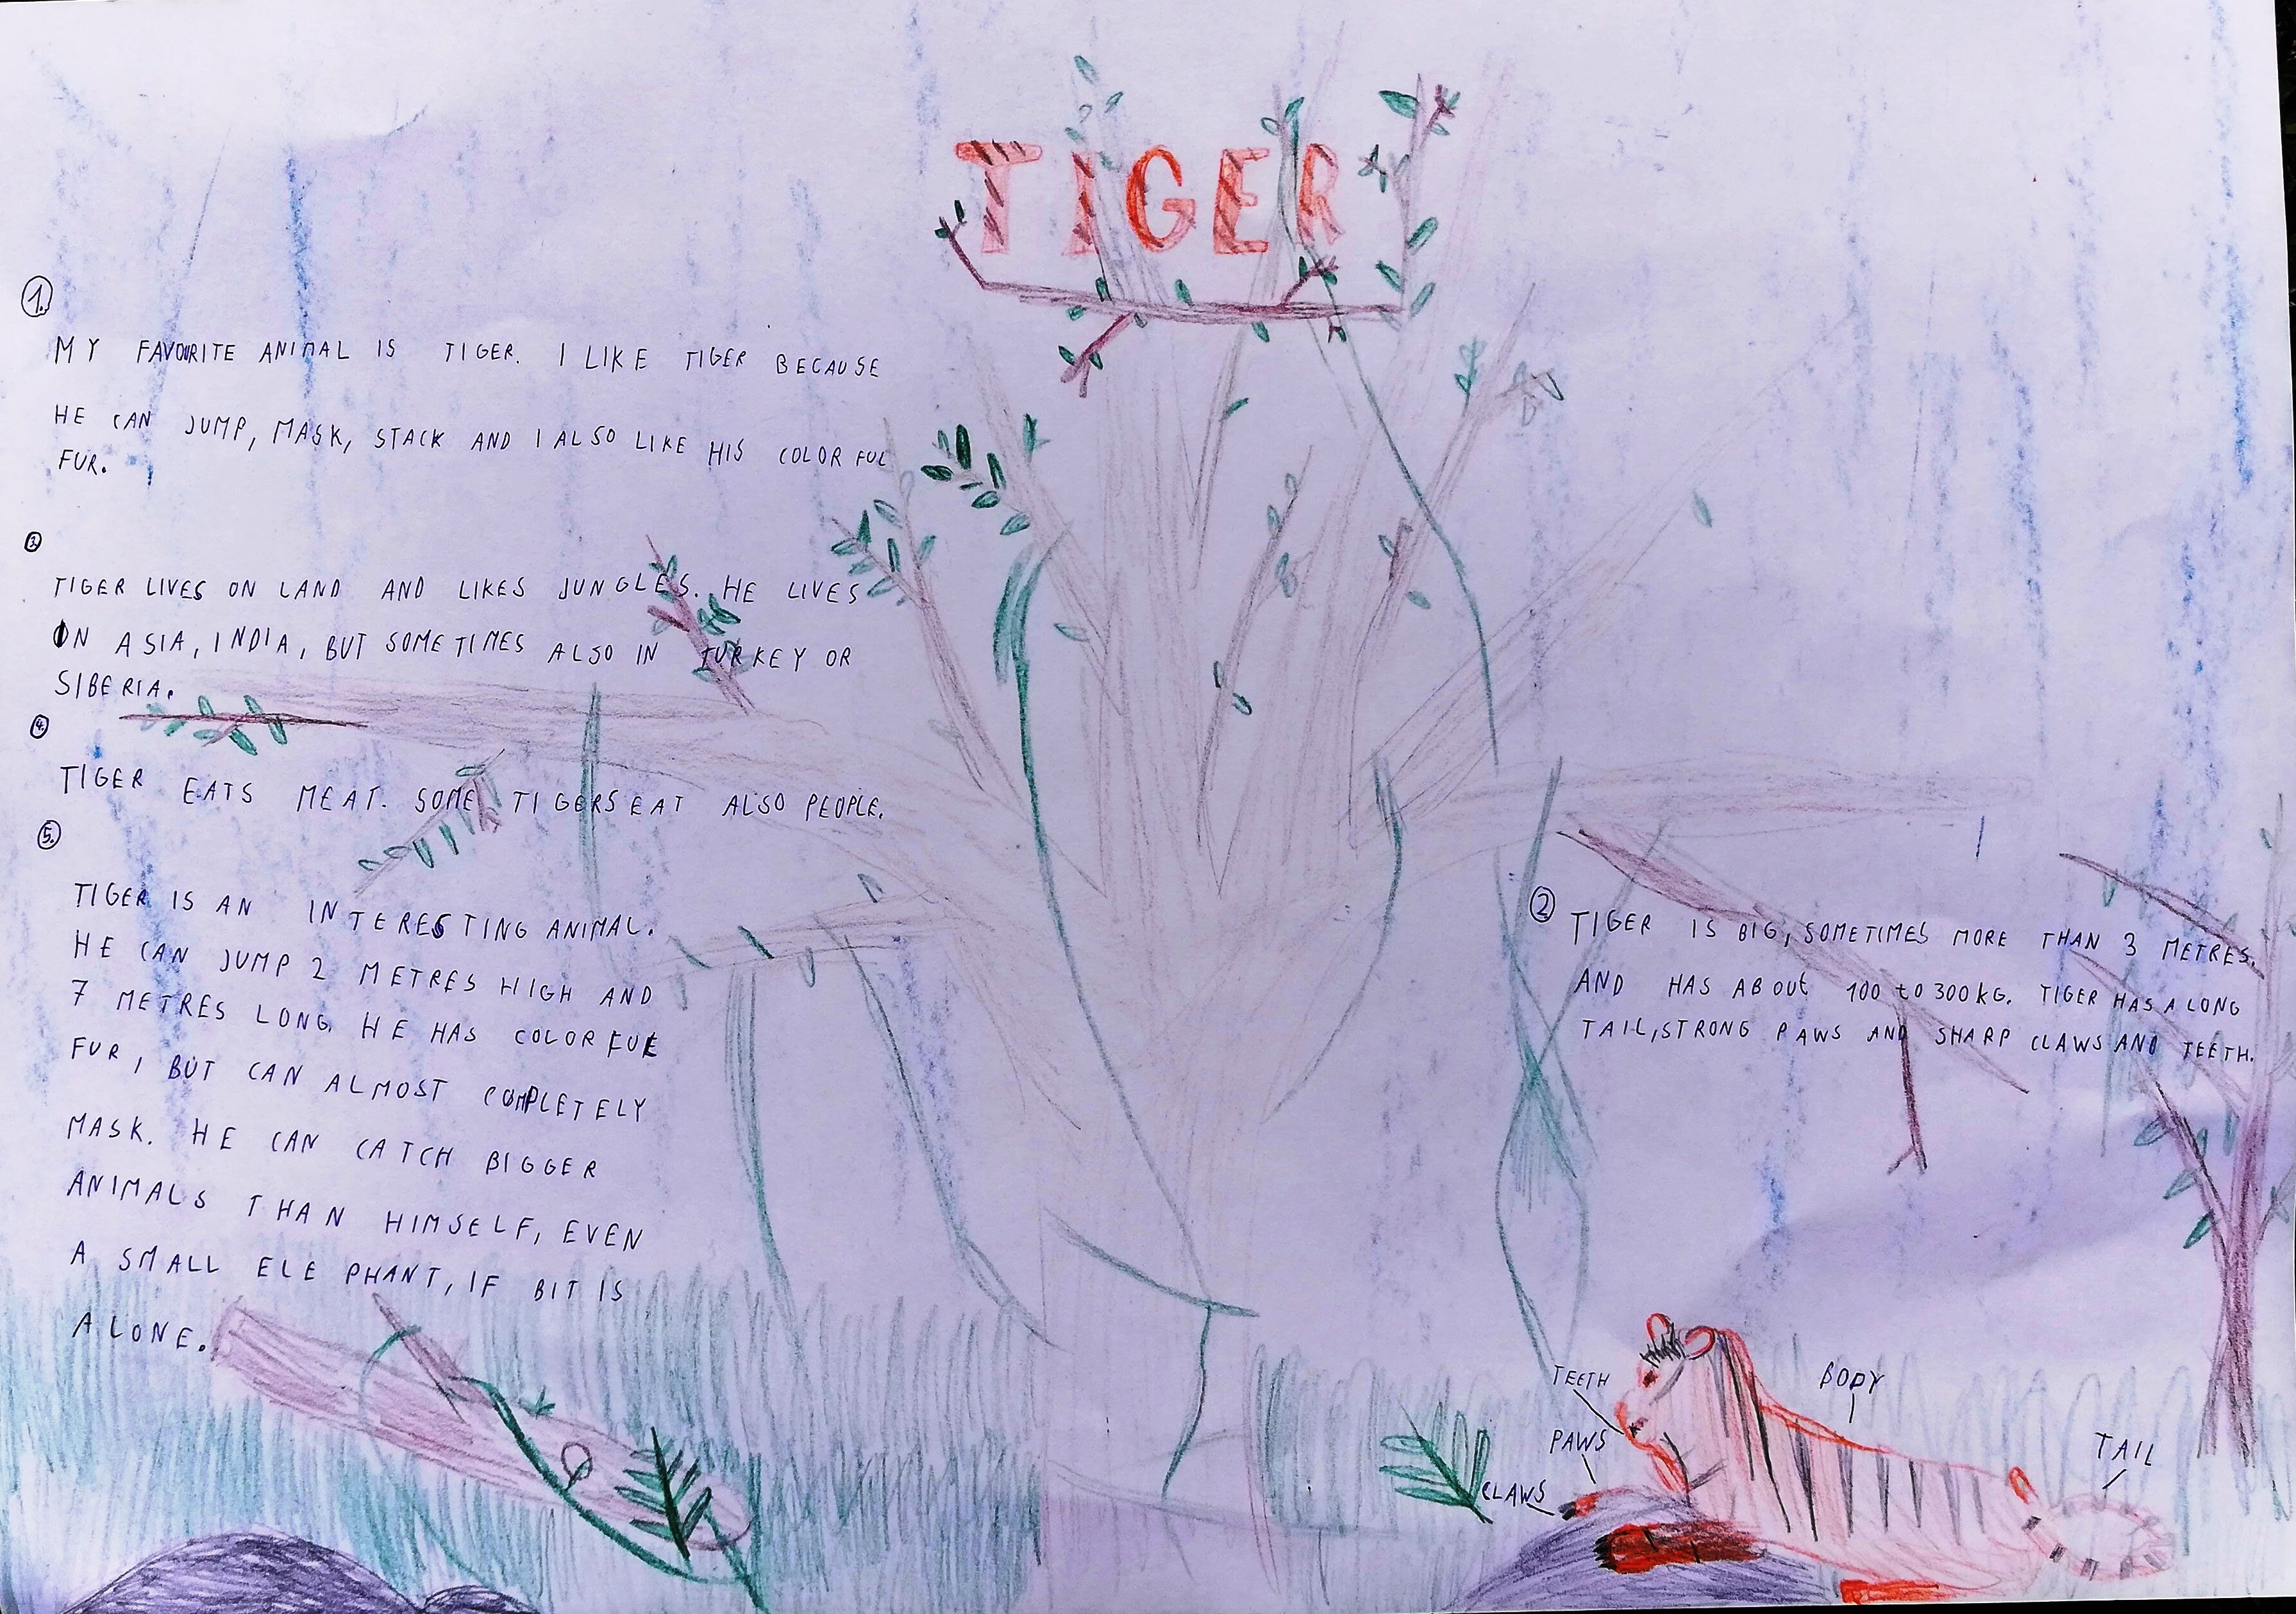 TIGER
1.
MY FAVOURITE ANIMAL IS TIGER. I LIKE TIGER BECAUSE
HE CAN JUMP, MASK, STACK AND I ALSO LIKE HIS COLOR FUL
FUR.
2
TIGER IS BIG, SOMETIMES MORE THAN 3 METRES.
AND HAS ABOUt 100 to 300 KG. TIGER HAS A LONG
TAIL, STRONG PAWS AND SHARP CLAWS AND TEETH.
3.
TIGER LIVES ON LAND AND LIKES JUNGLES. HE LIVES
IN ASIA, INDIA, BUT SOMETIMES ALSO IN TURKEY OR
SIBERIA.
4.
TIGER EATS MEAT. SOME TIGERS EAT ALSO PEOPLE.
5.
TIGER IS AN INTERESTING ANIMAL.
HE CAN JUMP 2 METRES HIGH AND
7 METRES LONG. HE HAS COLORFUL
FUR, BUT CAN ALMOST COMPLETELY
MASK. HE CAN CATCH BIGGER
ANIMALS THAN HIMSELF, EVEN
A SMALL ELE PHANT, IF BIT IS
ALONE.
TEETH
PAWS
CLAWS
BODY
TAIL